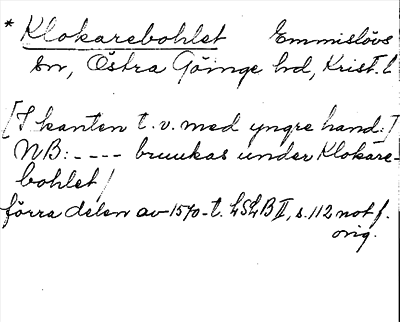 * Klokarebohlet Emmislövs
sn, Östra Göinge hd, Krist. l
[I kanten t. v. med yngre hand:]
NB: - - - - bruukas under Klokare-
bohlet/
förra delen av 1570-t. LSLB II, s. 112 not f.
orig.